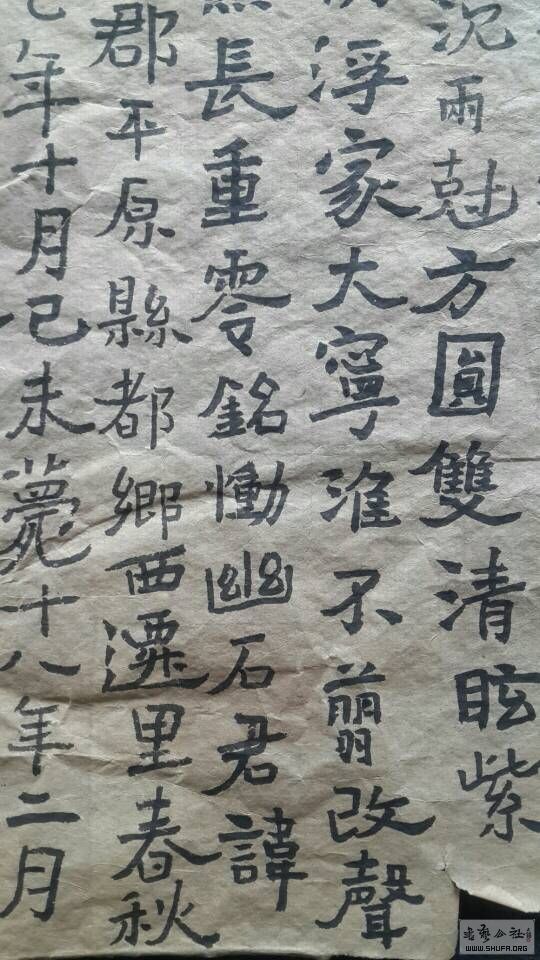 雨尅方圓雙清眩紫
浮家大寧淮不翦改聲
長重零銘慟幽石君諱
郡平原縣都鄉西遷里春秋
年十月己未薨十八年二月
WWW.SHUFA.ORG